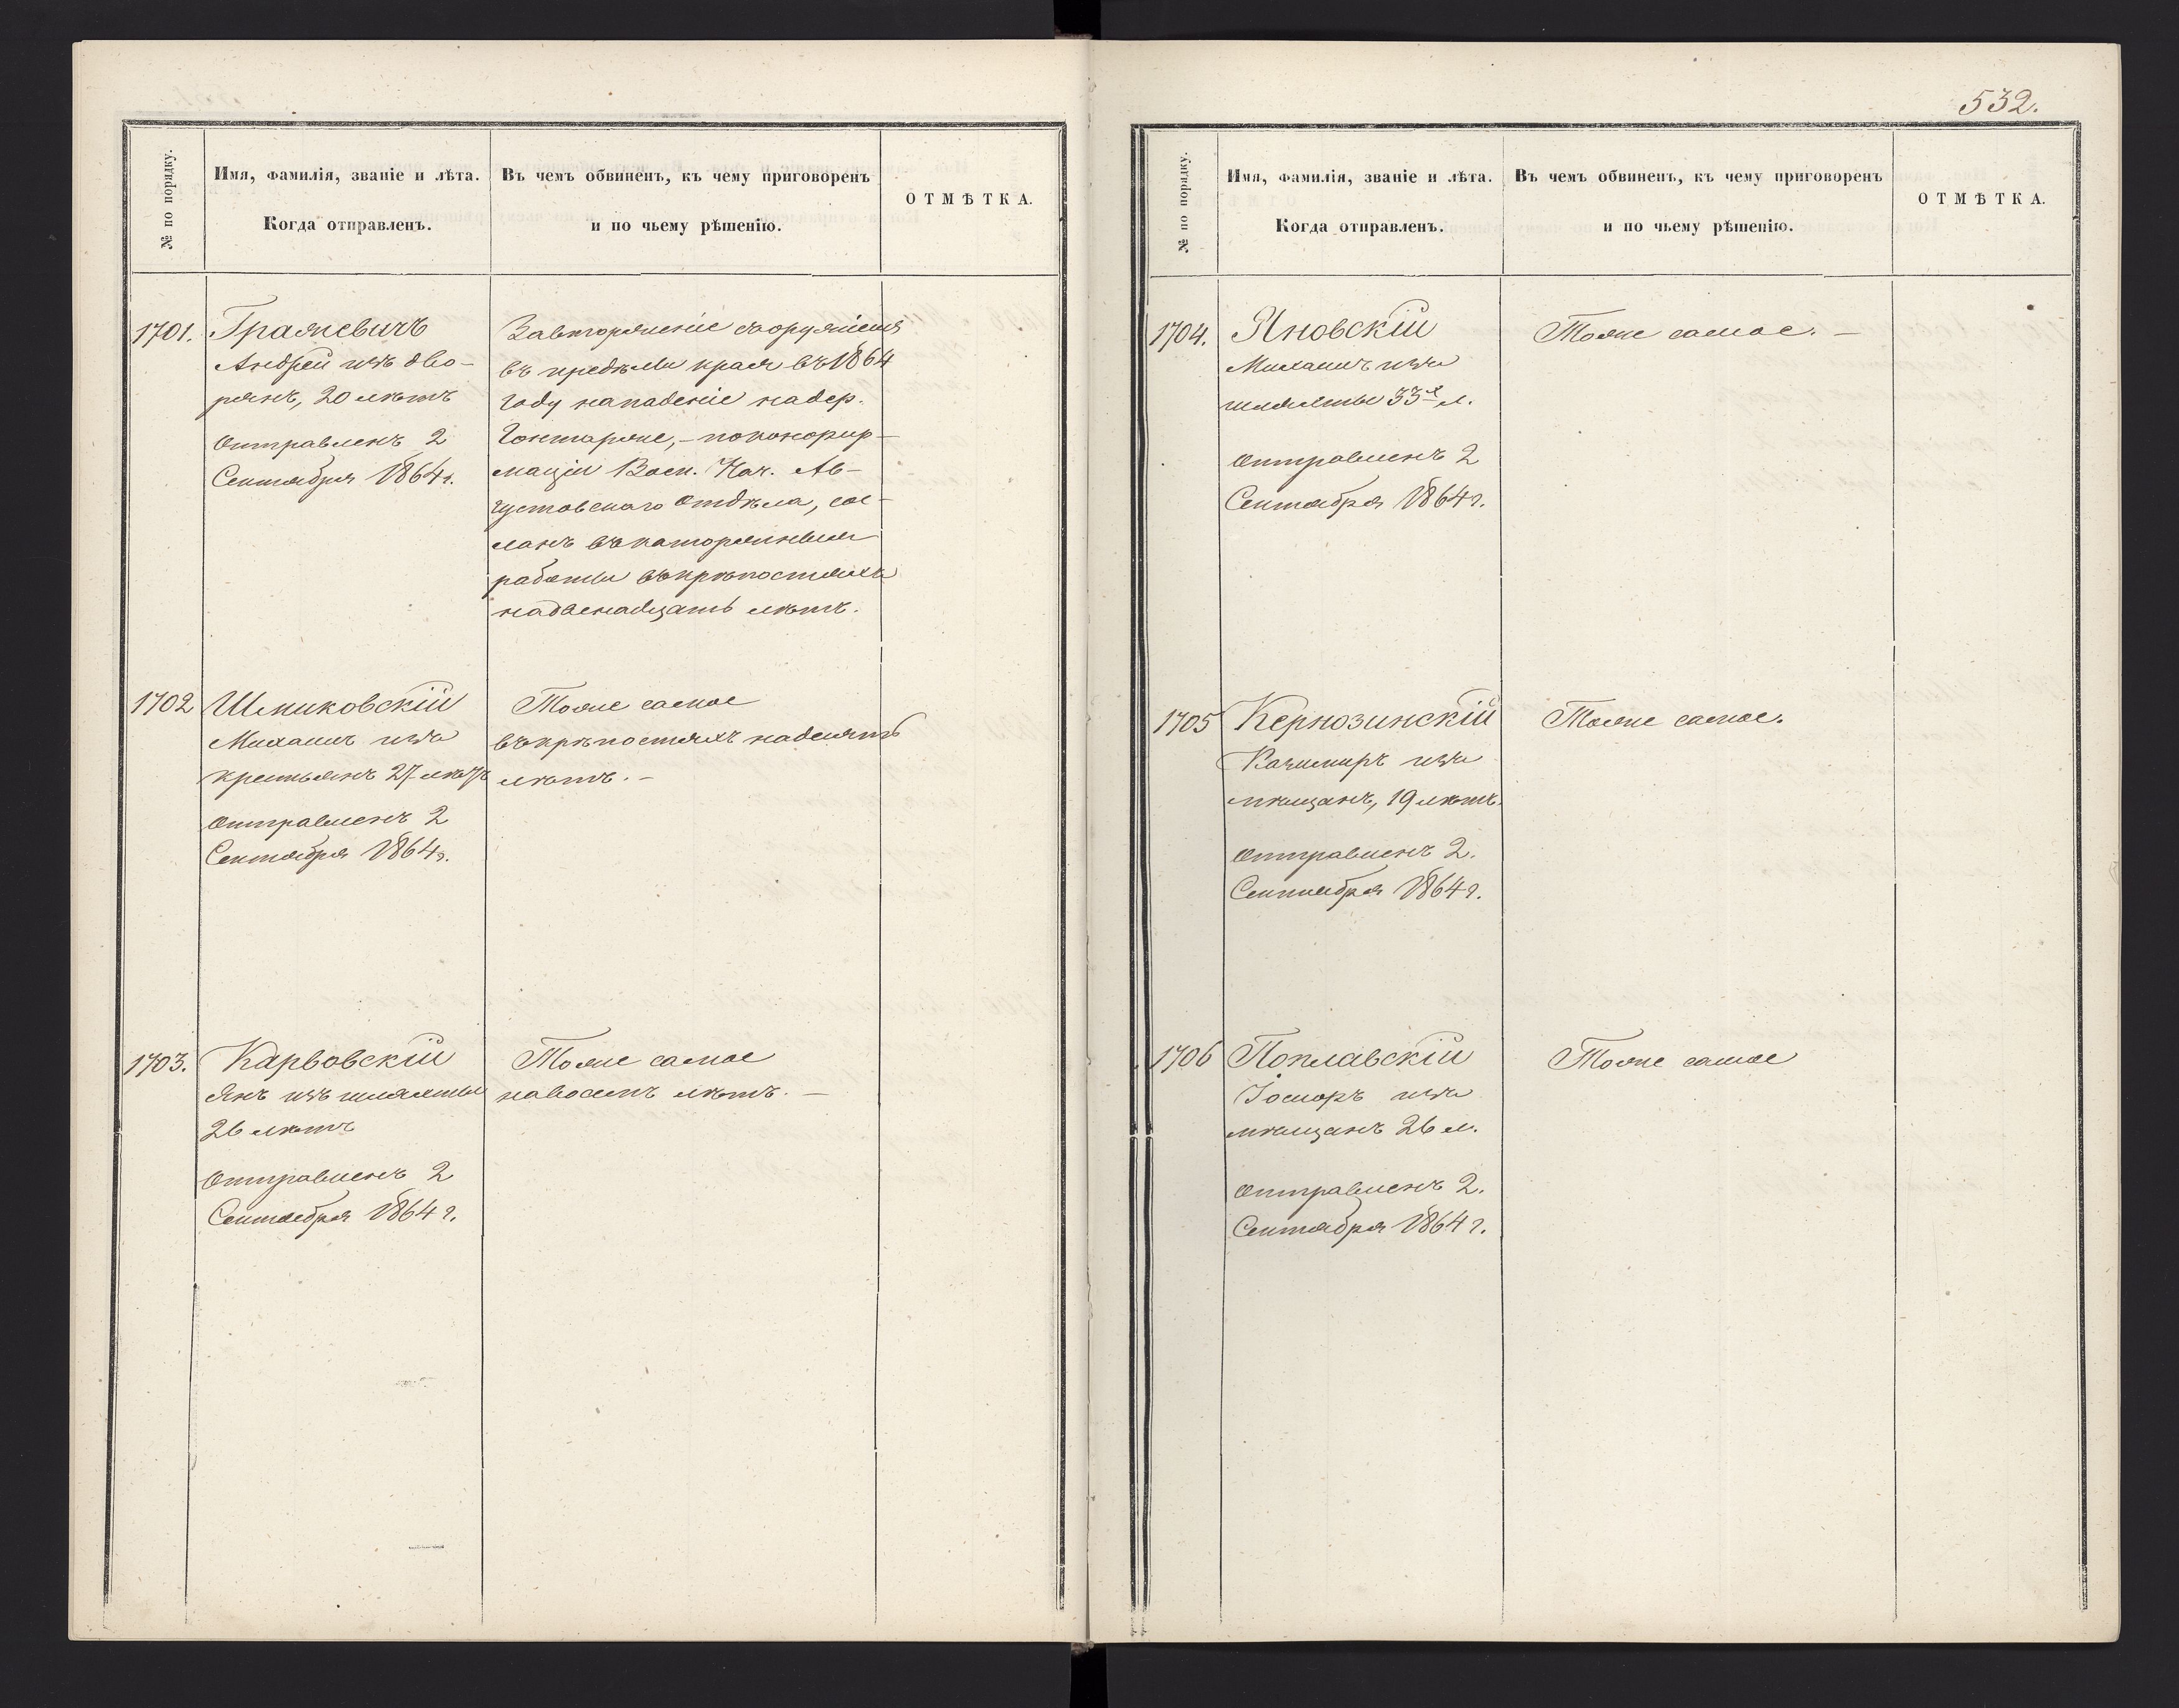 532.
№ по порядку.
Имя, фамилія, званіе и лѣта.
Когда отправленъ.
Въ чемъ обвиненъ, къ чему приговоренъ
и по чьему рѣшенію.
ОТМѢТКА.
1701.
Гражевичъ
Андрей изъ дво-
рянъ, 20 лѣтъ
Отправленъ 2
Сентября 1864 г.
За вторженіе съ оружіемъ
въ предѣлы края въ 1864
году нападеніе на дер.
Гонтарже, – по конфир-
маціи Воен. Нач. Ав-
густовскаго Отдѣла, сос-
ланъ въ каторжныя
работы въ крѣпостяхъ
на двенадцать лѣтъ.
1702
Шмиковскій
Михаилъ изъ
крестьянъ 27 лѣтъ
Отправленъ 2
Сентября 1864 г.
Тоже самое
въ крѣпостяхъ на десять
лѣтъ. –
1703.
Карвовскій
Янъ изъ шляхты
26 лѣтъ
Отправленъ 2
Сентября 1864 г.
Тоже самое
на восемъ лѣтъ. –
№ по порядку.
Имя, фамилія, званіе и лѣта.
Когда отправленъ.
Въ чемъ обвиненъ, къ чему приговоренъ
и по чьему рѣшенію.
ОТМѢТКА.
1704.
Яновскій
Михаилъ изъ
шляхты 33х л.
Отправленъ 2
Сентября 1864 г.
Тоже самое. –
1705
Кернозинскій
Казимиръ изъ
мѣщанъ, 19 лѣтъ.
Отправленъ 2.
Сентября 1864 г.
Тоже самое.
1706
Поплавскій
изъ
мѣщанъ 26 л.
Отправленъ 2.
Сентября 1864 г.
Тоже самое